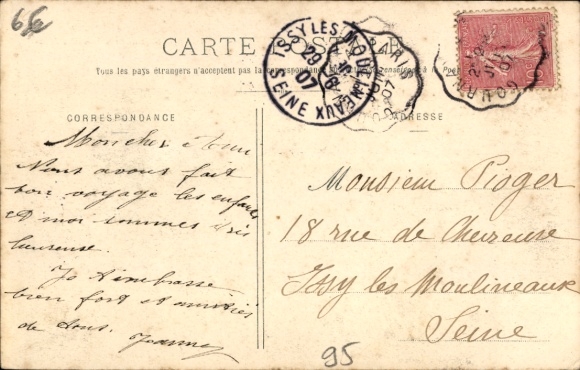 66
CARTE POSTALE
Tous les pays étrangers n'acceptent pas la correspondance
ISSY LES MOULINEAUX
29
6
07
SEINE
CORRESPONDANCE
ADRESSE
Mon cher
Nous avons fait
bon voyage les enfants
et moi sommes très
heureuse.
Je t'embrasse
bien fort et amitiés
de tous.
Jeanne
Monsieur Pioger
18 rue de Chevreuse
Issy les Moulineaux
Seine
95